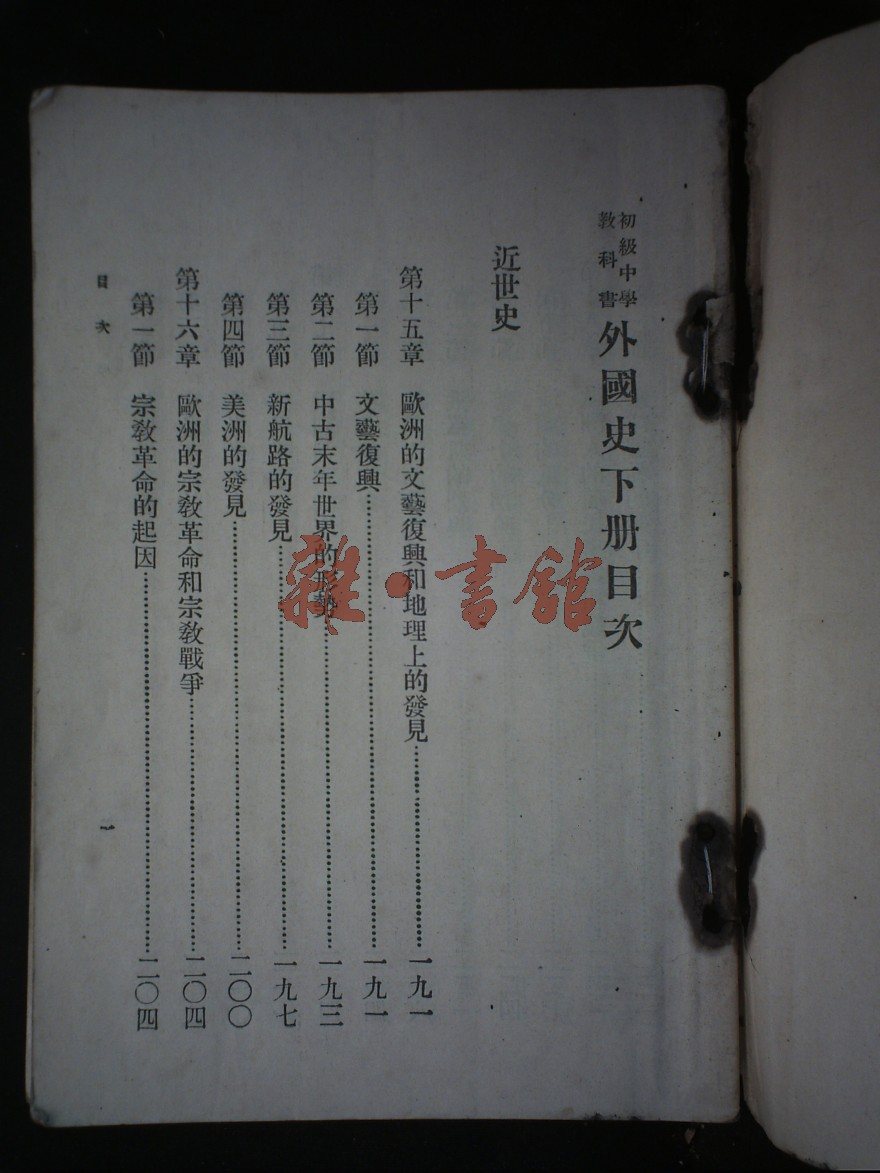 初級中學
教科書
外國史下册目次
近世史
第十五章 歐洲的文藝復興和地理上的發見……一九一
第一節 文藝復興……一九一
第二節 中古末年世界的形勢……一九三
第三節 新航路的發見……一九七
第四節 美洲的發見……二〇〇
第十六章 歐洲的宗教革命和宗教戰爭……二〇四
第一節 宗教革命的起因……二〇四
目次
一
雜·書館